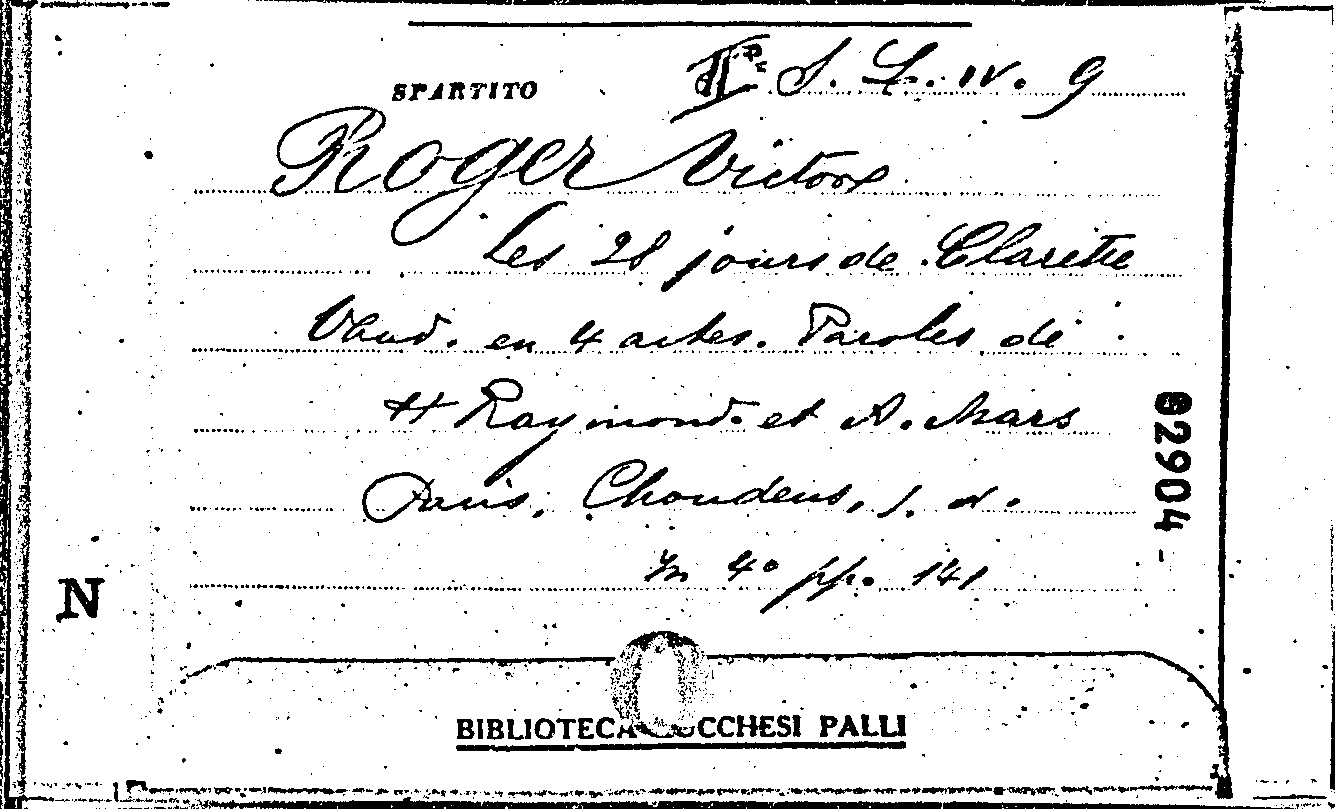 SPARTITO
S. L. IV. 9
Roger Victor
Les 28 jours de Clarette
Vaud. en 4 actes. Paroles de
H Raymond et A. Mars
Paris, Choudens, s. d.
In 4º pp. 141
62904
N
BIBLIOTECA LUCCHESI PALLI